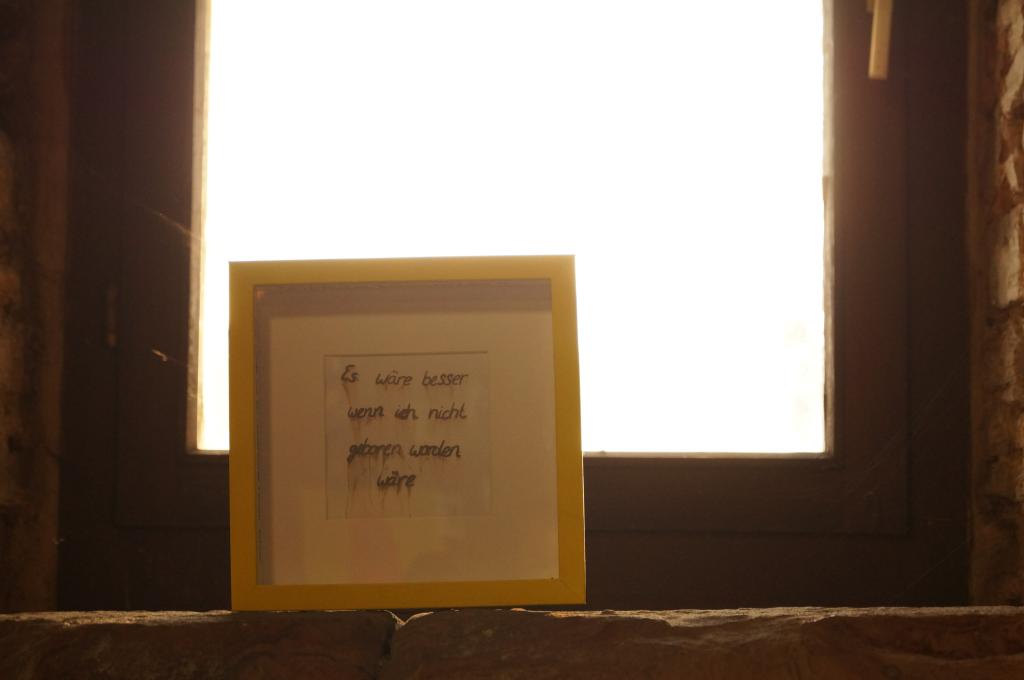 Es wäre besser
wenn ich nicht
geboren worden
wäre